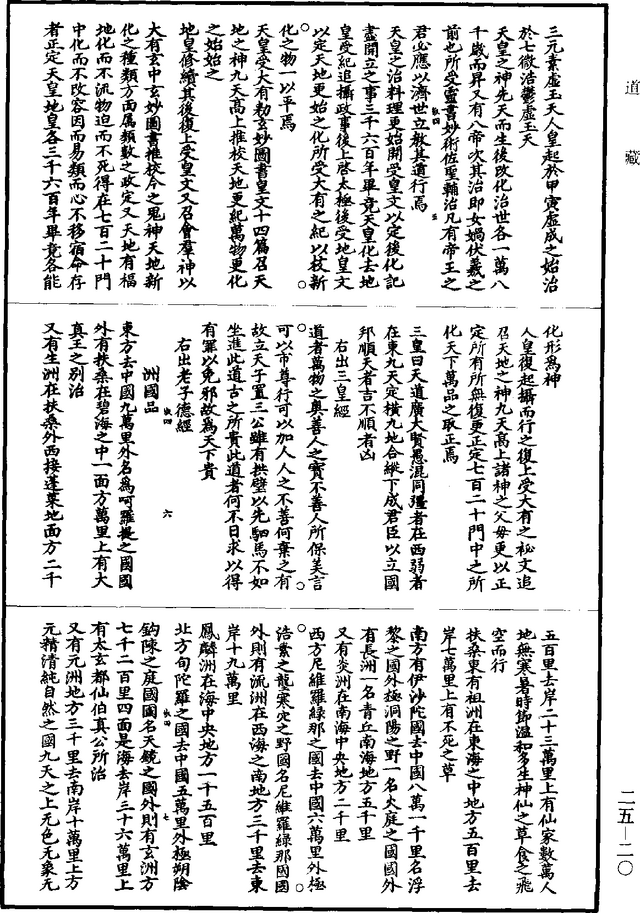 道藏
三元素虛玉天人皇起於甲寅虛成之始治
於七微浩鬱虛玉天
天皇之神先天而生後改化治世各一萬八
千歲而昇又有八帝次其治即女媧伏羲之
前也所受靈書妙術佐聖輔治凡有帝王之
君必應以濟世立教其道行焉
天皇之治料理更始開受皇文以定後化記
盡開立之事三千六百年畢竟天皇化去地
皇受紀追攝政事後上啓太極後受地皇文
以定天地更始之化所受大有之紀以校新
化之物一以平焉
天皇受大有勑玄妙圖書皇文十四篇召天
地之神九天高上推校天地更紀萬物更化
地皇修續其後復上受皇文又召會羣神以
之始始之
大有玄中玄妙圖書推校令之鬼神天地新
化之種類方面屬類數之政定又天地有福
地化而不流物迫而不死得在七百二十門
中化而不改容因而易類而心不移宿命存
者正定天皇地皇各三千六百年畢竟各能
化形為神
人皇復起攝而行之復上受大有之祕文追
召天地之神九天高上諸神之父母更以正
定所有所無復更正定七百二十門中之所
化天下萬品之取正焉
三皇曰天道廣大賢愚混同彊者在西弱者
在東九天定橫九地合縱下成君臣以立國
邦順天者吉不順者凶
右出三皇經
道者萬物之奧善人之寶不善人所保美言
可以市尊行可以加人人之不善何棄之有
故立天子置三公雖有拱璧以先駟馬不如
坐進此道古之所貴此道者何不日求以得
有罪以免邪故為天下貴
右出老子德經
洲國品
六
東方去中國九萬里外名為呵羅提之國國
外有扶桑在碧海之中一面方萬里上有大
真王之別治
又有生洲在扶桑外西接蓬萊地面方二千
五百里去岸二十三萬里上有仙家數萬人
地無寒暑時節溫和多生神仙之草食之飛
空而行
扶桑東有祖洲在東海之中地方五百里去
岸七萬里上有不死之草
南方有伊沙陀國去中國八萬一千里名浮
黎之國外極洞陽之野一名火庭之國國外
有長洲一名青丘南海地方五千里
又有炎洲在南海中央地方二千里
西方尼維羅綠那之國去中國六萬里外極
浩素之壟寒穴之野國名尼維羅綠那國國
外則有流洲在西海之南地方三千里去東
岸十九萬里
鳳麟洲在海中央地方一千五百里
北方旬陀羅之國去中國五萬里外極朔陰
七
鈎陳之庭國國名天鏡之國外則有玄洲方
七千二百里四面是海去岸三十六萬里上
有太玄都仙伯真公所治
又有元洲地方三千里去南岸十萬里上方
元精清純自然之國九天之上无色无象无
二五—二〇